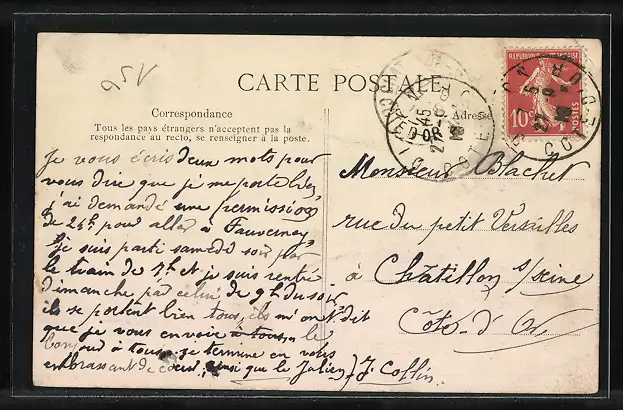 95V
CARTE POSTALE
Correspondance
Tous les pays étrangers n'acceptent pas la
correspondance au recto, se renseigner à la poste.
Adresse
RÉPUBLIQUE FRANÇAISE
10c
POSTES
DIJON
COTE D'OR
Je vous écris deux mots pour
vous dire que je me porte bien,
j'ai demandé une permission
de 24h pour aller à Fauverney
Je suis parti samedi soir par
le train de 7h et je suis rentré
dimanche par celui de 9h du soir
ils se portent bien tous, ils m'ont dit
que je vous envoie à tous le
bonjour à tous je termine en vous
embrassant de coeur, ainsi que le Julien J. Collin
Monsieur Blachet
rue du petit Versailles
à Châtillon s/seine
Côte-d'Or